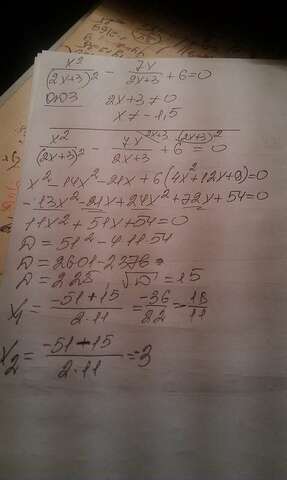 x²/(2x+3)² - 7x/(2x+3) + 6 = 0
ОДЗ 2x+3 ≠ 0
x ≠ -1,5
x²/(2x+3)² - 7x^(2x+3)/(2x+3) + 6^((2x+3)²) = 0
x² - 14x² - 21x + 6(4x² + 12x + 9) = 0
-13x² - 21x + 24x² + 72x + 54 = 0
11x² + 51x + 54 = 0
D = 51² - 4·11·54
D = 2601 - 2376
D = 225 √D = 15
x₁ = (-51+15)/(2·11) = -36/22 = -18/11
x₂ = (-51-15)/(2·11) = -3